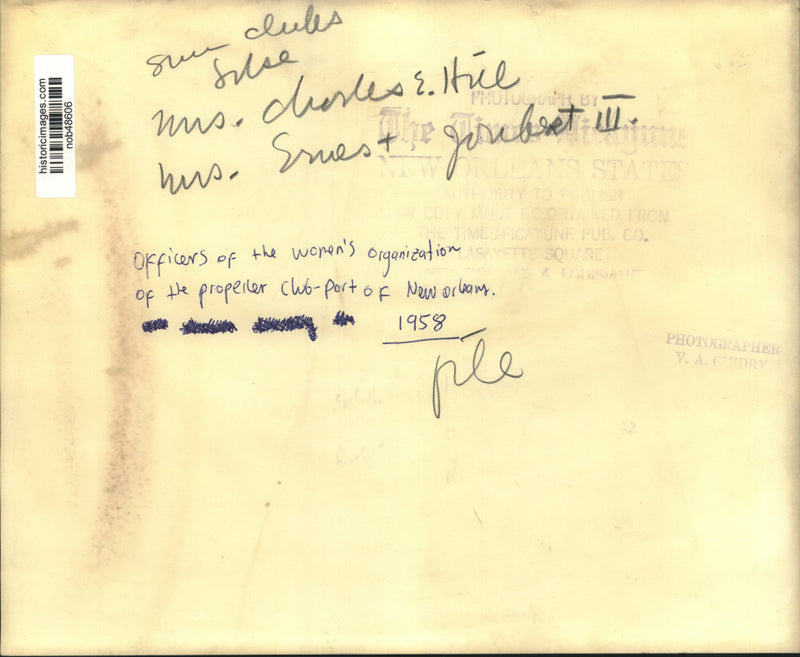 historicimages.com
nob48606
sun clubs
Mrs. Charles E. Hill
Mrs. Ernest Joubert III.
PHOTOGRAPH BY
The Times-Picayune
NEW ORLEANS STATES
AUTHORITY TO PUBLISH
OR COPY MUST BE OBTAINED FROM
THE TIMES-PICAYUNE PUB. CO.
LAFAYETTE SQUARE
4, LOUISIANA
Officers of the women's organization
of the propeller Club-Port of New orleans.
1958
file
PHOTOGRAPHER
V. A. GUIDRY